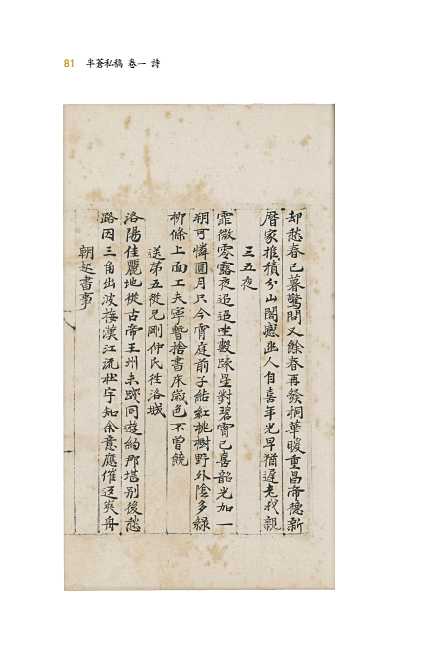 81 半蒼私稿 卷一 詩
却愁春已暮驚問又餘春再發桐華暖重昌帝德新
曆家推積分山閣感幽人自喜年光早猶遲老我親
三五夜
霏微零露夜迢迢坐數踈星對碧霄已喜韶光加一
朔可憐圓月只今宵庭前子結紅桃樹野外陰多綠
柳條上面工夫寧暫捨書床氣色不曾饒
送第五從兄剛仲氏徃洛城
洛陽佳麗地從古帝王州未踐同遊約那堪別後愁
路因三角出波接漢江流杜宇知余意應催返爽舟
朝起書事